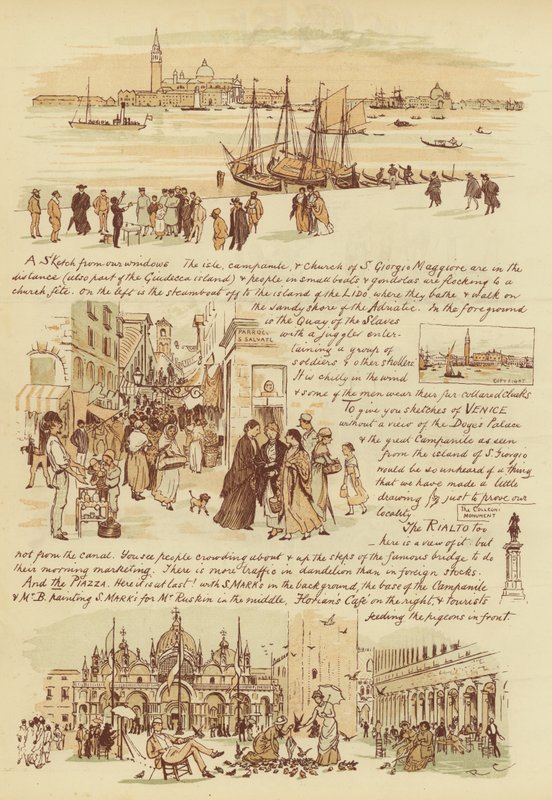 A Sketch from our windows The isle, campanile, & church of S Giorgio Maggiore are in the
distance (also part of the Giudecca island) & people in small boats & gondolas are flocking to a
church fête. On the left is the steamboat off to the island of the LIDO where they bathe & walk on
the sandy shore of the Adriatic. In the foreground
is the Quay of the Slaves
with a juggler enter-
taining a group of
soldiers & other strollers
It is chilly in the wind
& some of the men wear their fur collared cloaks
PARROCA
S. SALVATE
COPYRIGHT
To give you sketches of VENICE
without a view of the Doges Palace
& the great Campanile as seen
from the island of S. Giorgio
would be so unheard of a thing
that we have made a little
drawing just to prove our
locality
The COLLEONI
MONUMENT
The RIALTO too
here is a view of it but
not from the canal. You see people crowding about & up the steps of the famous bridge to do
their morning marketing. There is more traffic in dandelion than in foreign stocks.
And the PIAZZA. Here it is at last! with S. MARKS in the background, the base of the Campanile
& Mr B. painting S. MARKS for Mr Ruskin in the middle, Florian's Café on the right, & tourists
feeding the pigeons in front.